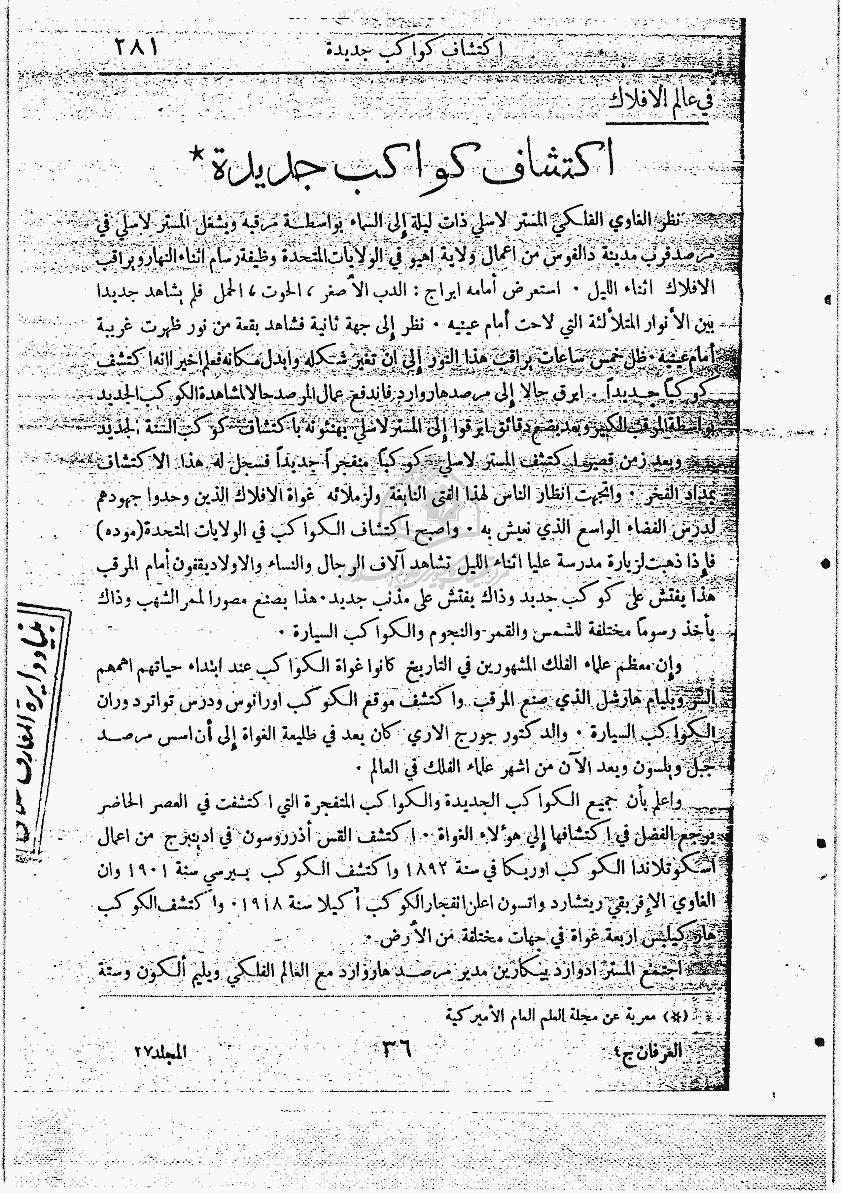 اكتشاف كواكب جديدة ٢٨١
في عالم الافلاك
اكتشاف كواكب جديدة *
نظر الغاوي الفلكي المستر لاسلي ذات ليلة إلى السماء بواسطة مرقبه ويشغل المستر لاسلي في
مرصد قرب مدينة دالفوس من اعمال ولاية اهيو في الولايات المتحدة وظيفة رسام اثناء النهار ويراقب
الافلاك اثناء الليل . استعرض أمامه ابراج : الدب الأصغر ، الحوت ، الحمل فلم يشاهد جديدا
بين الأنوار المتلألئة التي لاحت أمام عينيه . نظر إلى جهة ثانية فشاهد بقعة من نور ظهرت غريبة
أمام عينيه . ظل خمس ساعات يراقب هذا النور إلى ان تغير شكله وابدل مكانه فعلم اخيرا انه اكتشف
كوكباً جديداً . ابرق حالا إلى مرصد هاروارد فاندفع عمال المرصد حالا لمشاهدة الكوكب الجديد
بواسطة المرقب الكبير وبعد بضع دقائق ابرقوا إلى المستر لاسلي يهنئونه باكتشاف كوكب السنة الجديد
وبعد زمن قصير اكتشف المستر لاسلي كوكباً منفجراً جديداً فسجل له هذا الاكتشاف
بمداد الفخر . واتجهت انظار الناس لهذا الفتى النابغة ولزملائه غواة الافلاك الذين وحدوا جهودهم
لدرس الفضاء الواسع الذي نعيش به . واصبح اكتشاف الكواكب في الولايات المتحدة (موده)
فإذا ذهبت لزيارة مدرسة عليا اثناء الليل تشاهد آلاف الرجال والنساء والاولاد يقفون أمام المرقب
هذا يفتش على كوكب جديد وذاك يفتش على مذنب جديد . هذا يصنع مصورا لممر الشهب وذاك
يأخذ رسوماً مختلفة للشمس والقمر والنجوم والكواكب السيارة .
وإن معظم علماء الفلك المشهورين في التاريخ كانوا غواة الكواكب عند ابتداء حياتهم اهمهم
السر ويليام هارشل الذي صنع المرقب واكتشف موقع الكوكب اورانوس ودرس تواتر دوران
الكواكب السيارة . والدكتور جورج الاري كان يعد في طليعة الغواة إلى أن اسس مرصد
جبل ويلسون ويعد الآن من اشهر علماء الفلك في العالم .
واعلم بأن جميع الكواكب الجديدة والكواكب المتفجرة التي اكتشفت في العصر الحاضر
يرجع الفضل في اكتشافها إلى هؤلاء الغواة . اكتشف القس أندرسون في ادينبرج من اعمال
اسكوتلاندا الكوكب اوريكا في سنة ١٨٩٢ واكتشف الكوكب بيرسي سنة ١٩٠١ وان
الغاوي الإفريقي ريتشارد واتسون اعلن انفجار الكوكب أكيلا سنة ١٩١٨ . واكتشف الكوكب
هاركيليس اربعة غواة في جهات مختلفة من الأرض .
اجتمع المستر ادوارد بيكارين مدير مرصد هاروارد مع العالم الفلكي ويليم ألكون وستة
(*) معربة عن مجلة العلم العام الأميركية
العرفان ج٤ ٣٦ المجلد ٢٧
بنياد دايرة المعارف